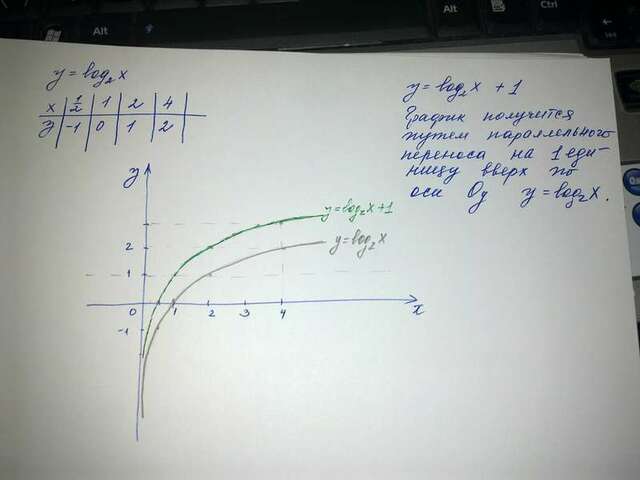 Alt
Ctrl
y = log₂x
x | 1/2 | 1 | 2 | 4 |
y | -1 | 0 | 1 | 2 |
y = log₂x + 1
График получится
путем параллельного
переноса на 1 еди-
ницу вверх по
оси Oy y = log₂x.
y
y = log₂x+1
y = log₂x
2
1
0 1 2 3 4 x
-1